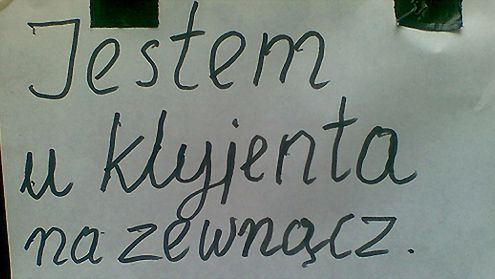 Jestem
u klyjenta
na zewnącz.